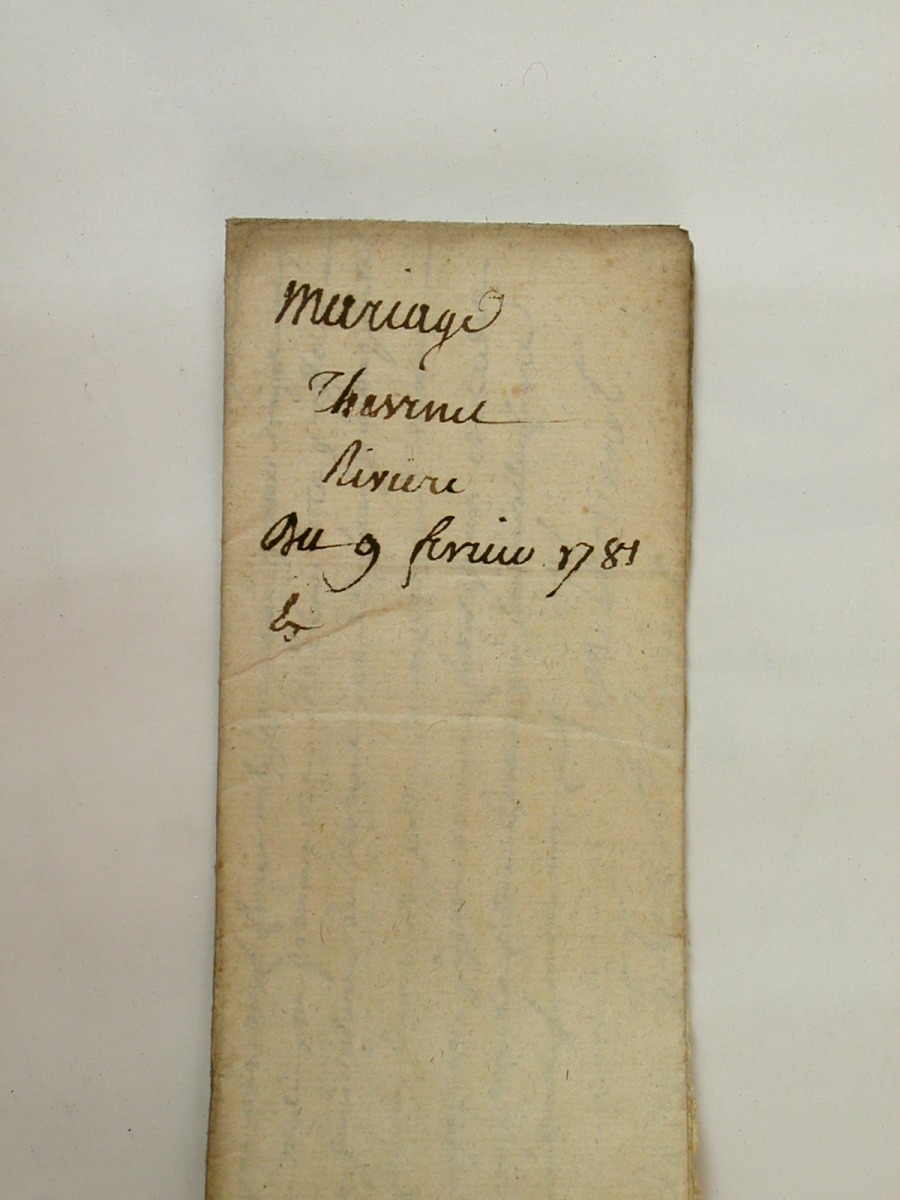 Mariage
Thevenet
Riviere
Du 9 fevrier 1781